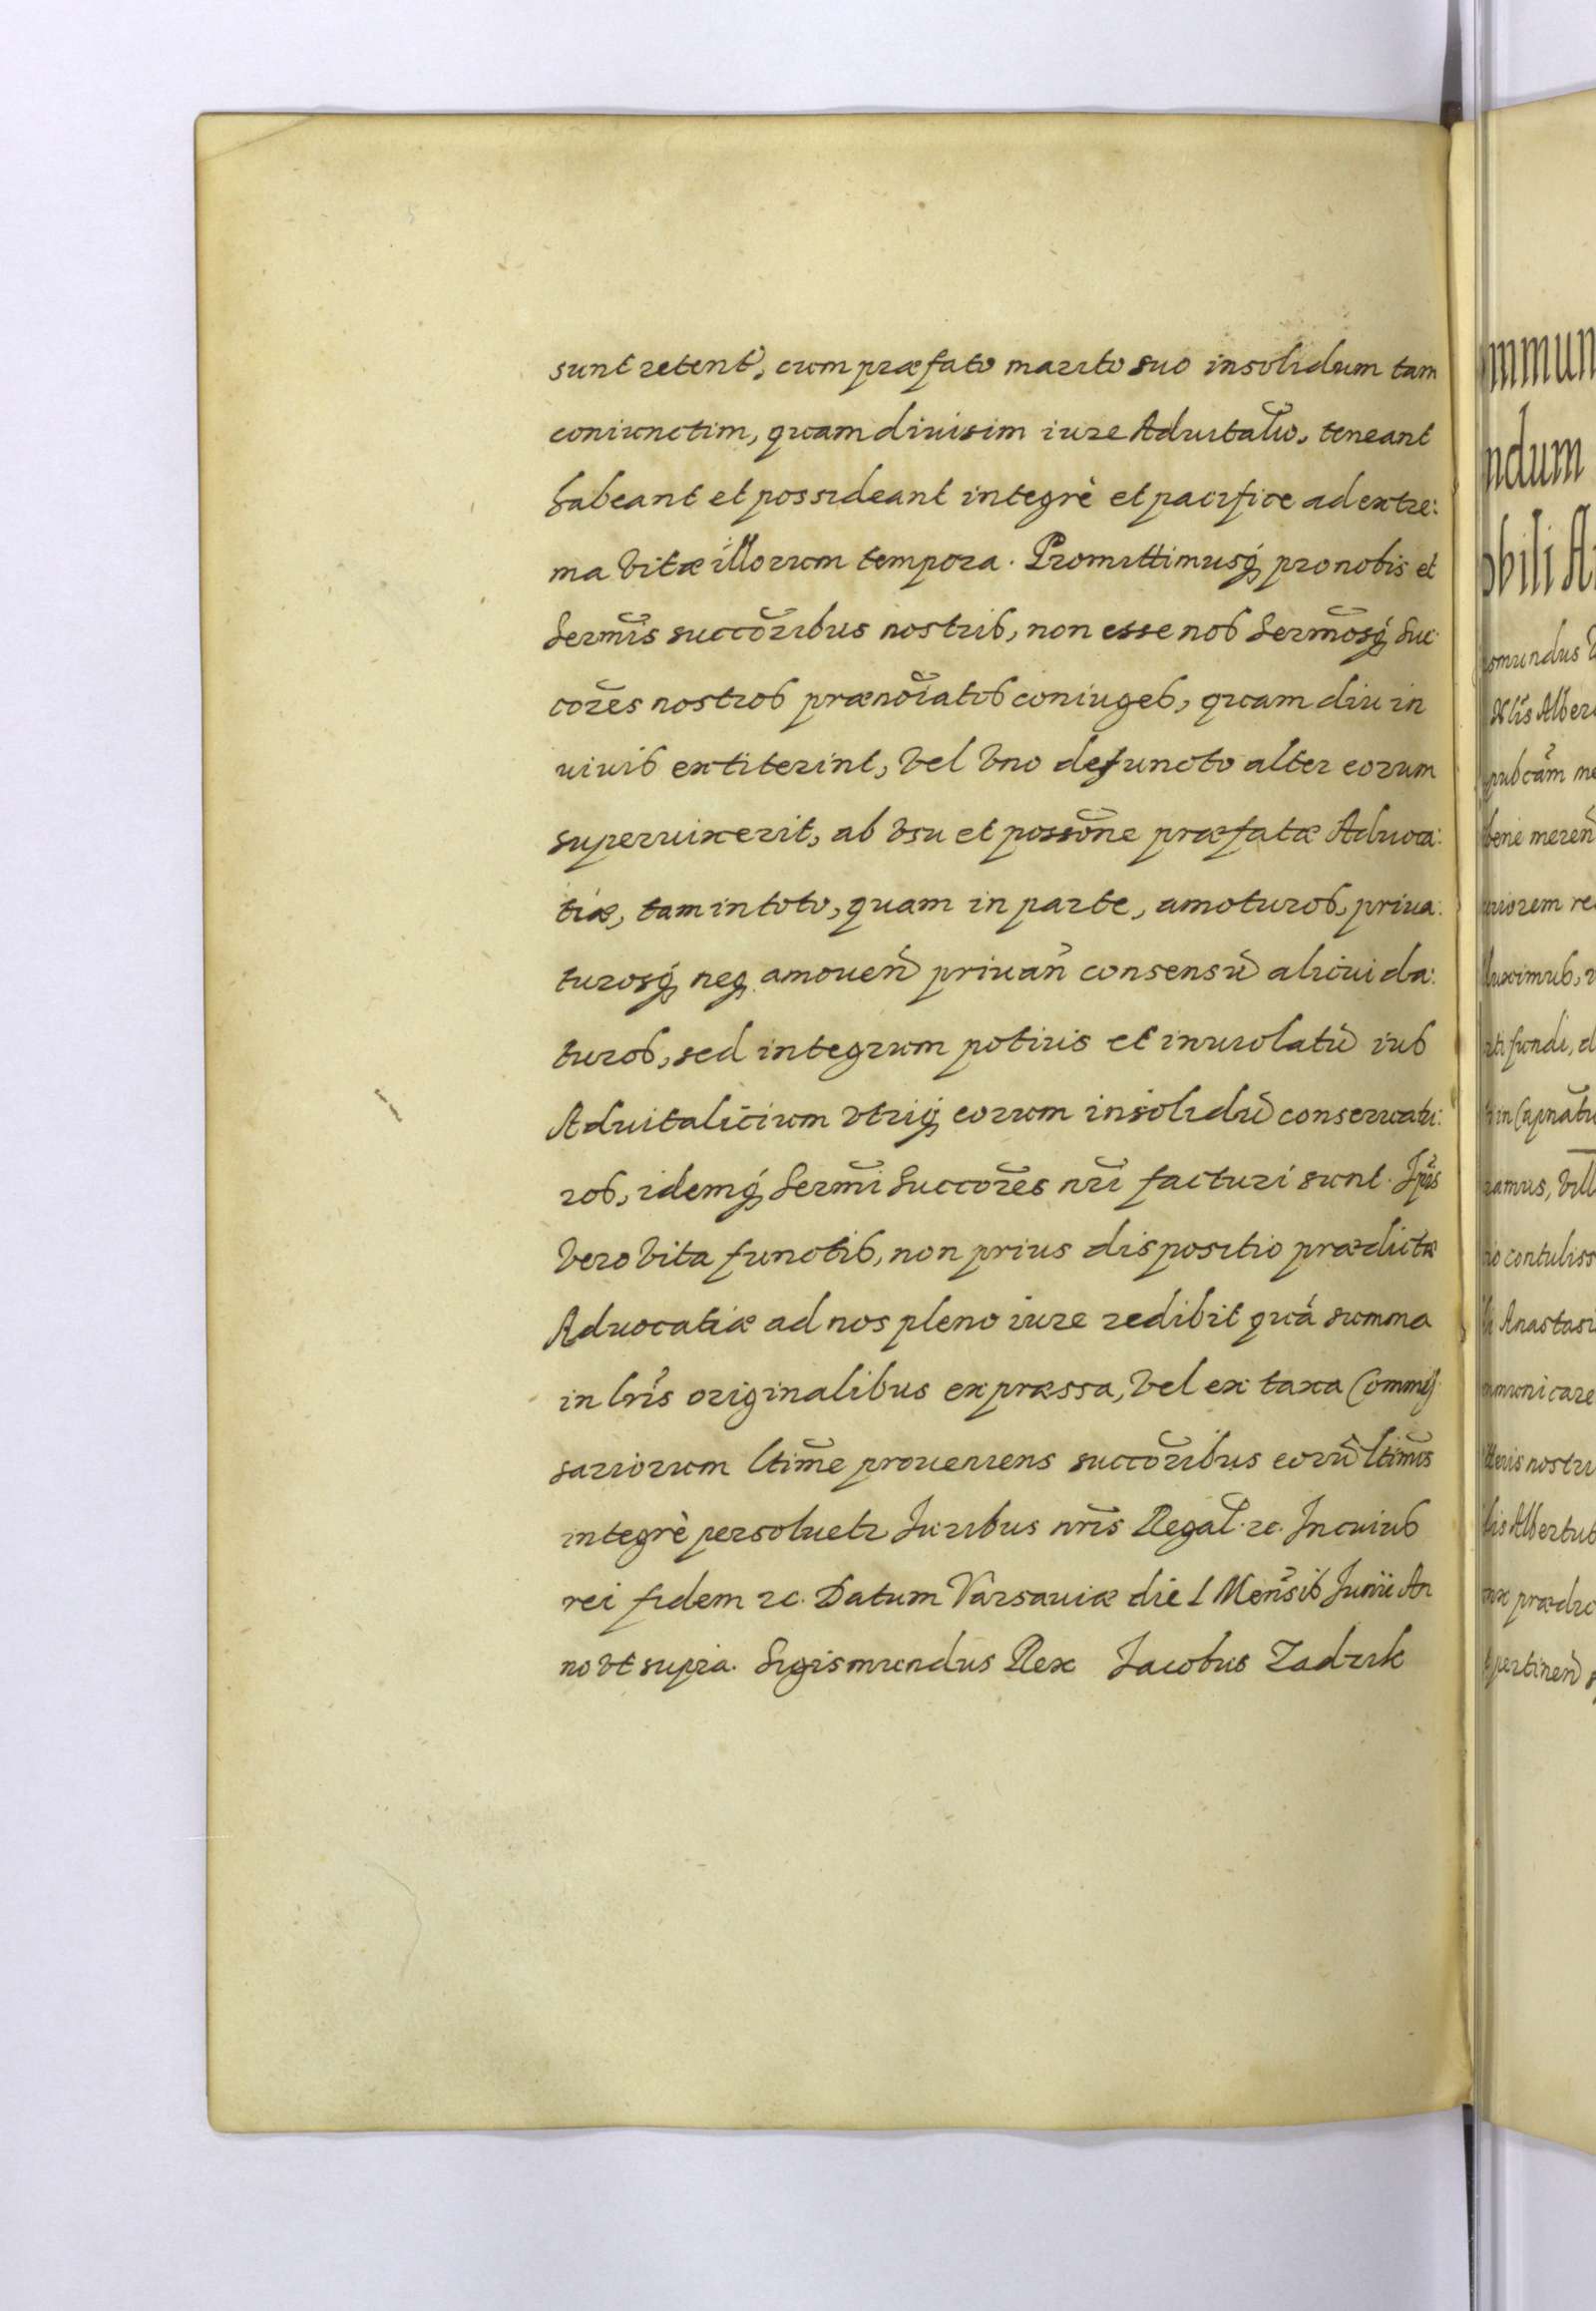 sunt retent̃, cum præfato marito suo insolidum tam
coniunctim, quam diuisim iure Aduitalĩo, teneant
habeant et possideant integrè et pacifice ad extre:
ma vitæ illorum tempora. Promittimusq́ pro nobis et
Sermĩs succõribus nostris, non esse nos Sermõsq́ Suc
cores̃ nostros prænoĩatos coniuges, quam diu in
uiuis extiterint, vel vno defuncto alter eorum
superuixerit, ab vsu et possõne præfatæ Aduoca:
tiæ, tam in toto, quam in parte, amoturos, priua:
turosq́ neq amouen̄ priuan̄ consensũ alicui da:
turos, sed integrum potius et inuiolatũ ius
Aduitalicium vtriq́ eorum insolidũ conseruatu:
ros, idemq́ Sermĩ Succores̃ nrĩ facturi sunt. Ipĩs
vero vita functis, non prius dispositio prædictæ
Aduocatiæ ad nos pleno iure redibit quá summa
in lrĩs originalibus expræssa, vel ex taxa Commis
sariorum ltim̃e proueniens succõribus eorũ ltimĩs
integrè persoluetr Iuribus nrĩs Regal̃. rc. In cuius
rei fidem rc. Datum Varsauiæ die 1 Mensĩs Junii An
no vt supra. Sigismundus Rex Jacobus Zadzik
mmun
ndum
obili A
omundus
Nlĩs Alber
pubcãm
bene meren̄
riorem re
uximus,
ti fundi, d
in Capnãtu
ramus, vill
io contuliss
Anastasi
mmunicare
tteris nostri
lis Albertus
præedic
pertinen̄